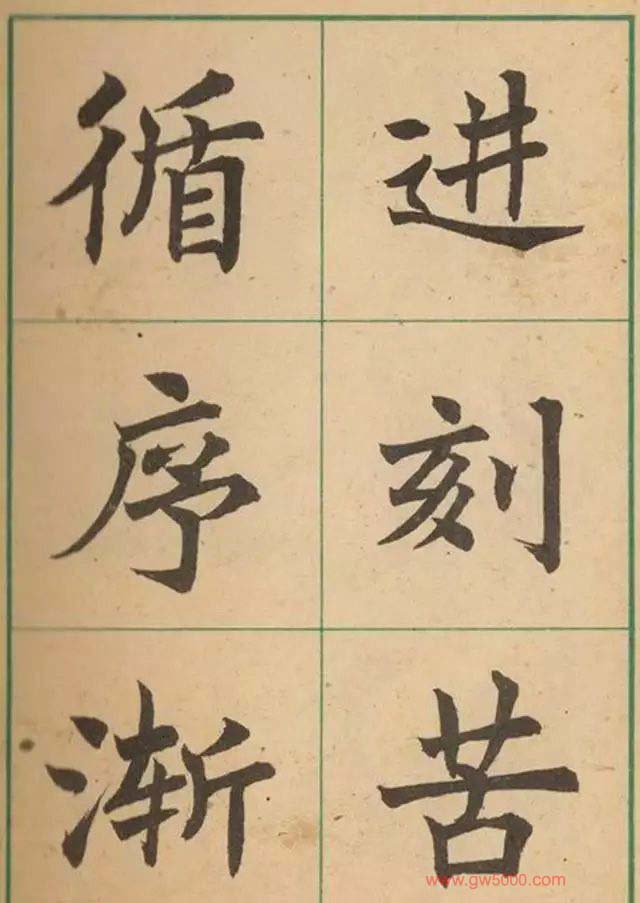 循序渐
进刻苦
www.gw5000.com